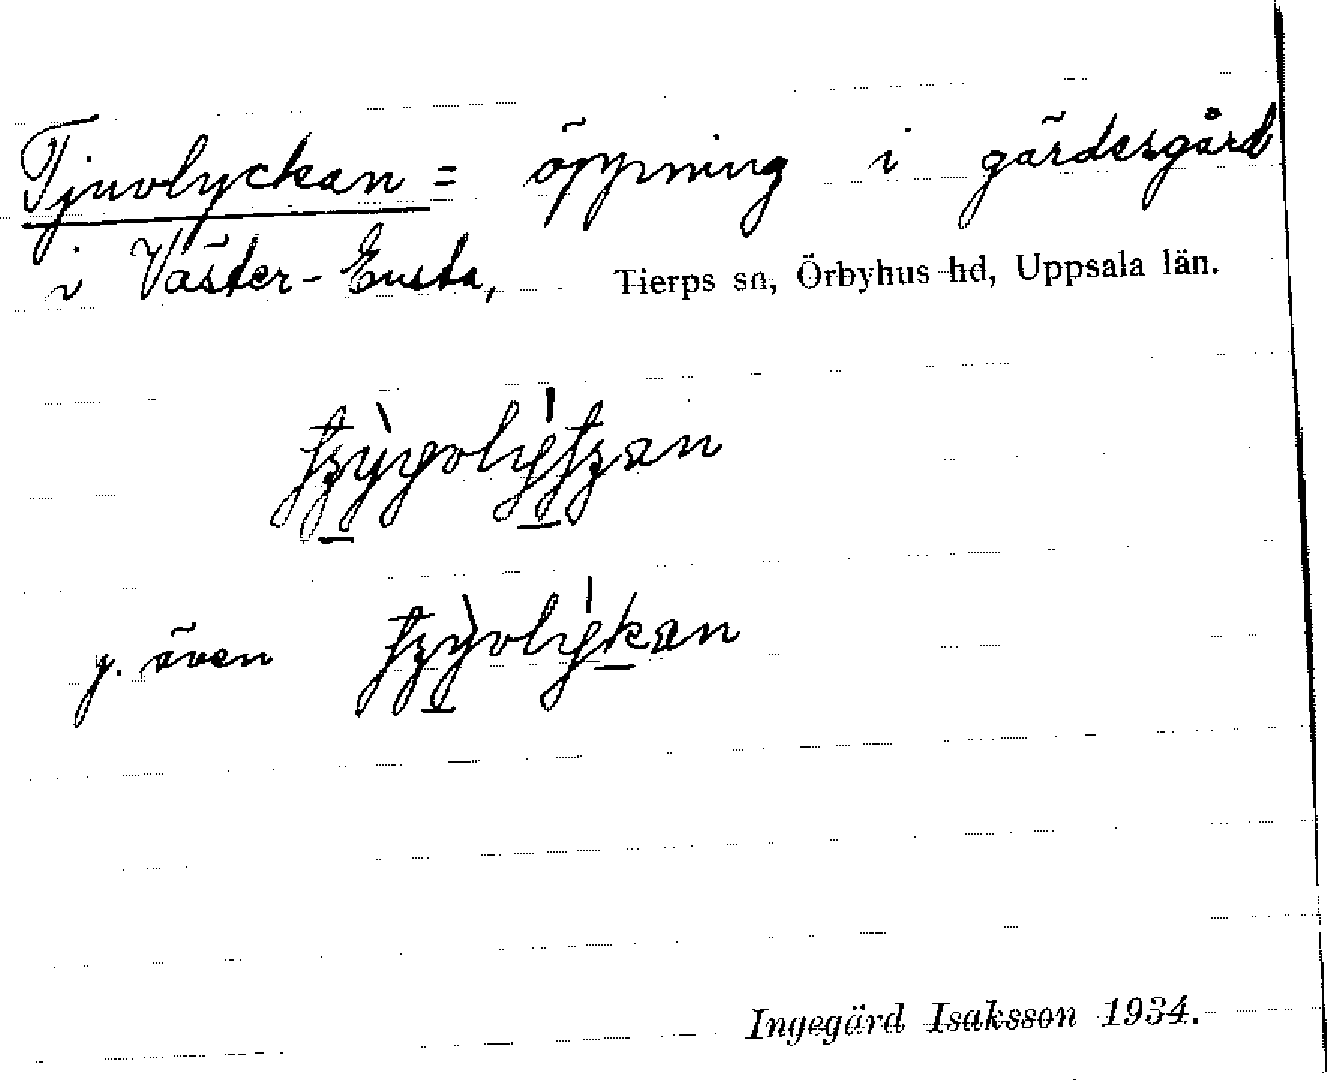 Tjuvlyckan = öppning i gärdesgård
i Väster-Ensta, Tierps sn, Örbyhus hd, Uppsala län.
g. även
Ingegärd Isaksson 1934.